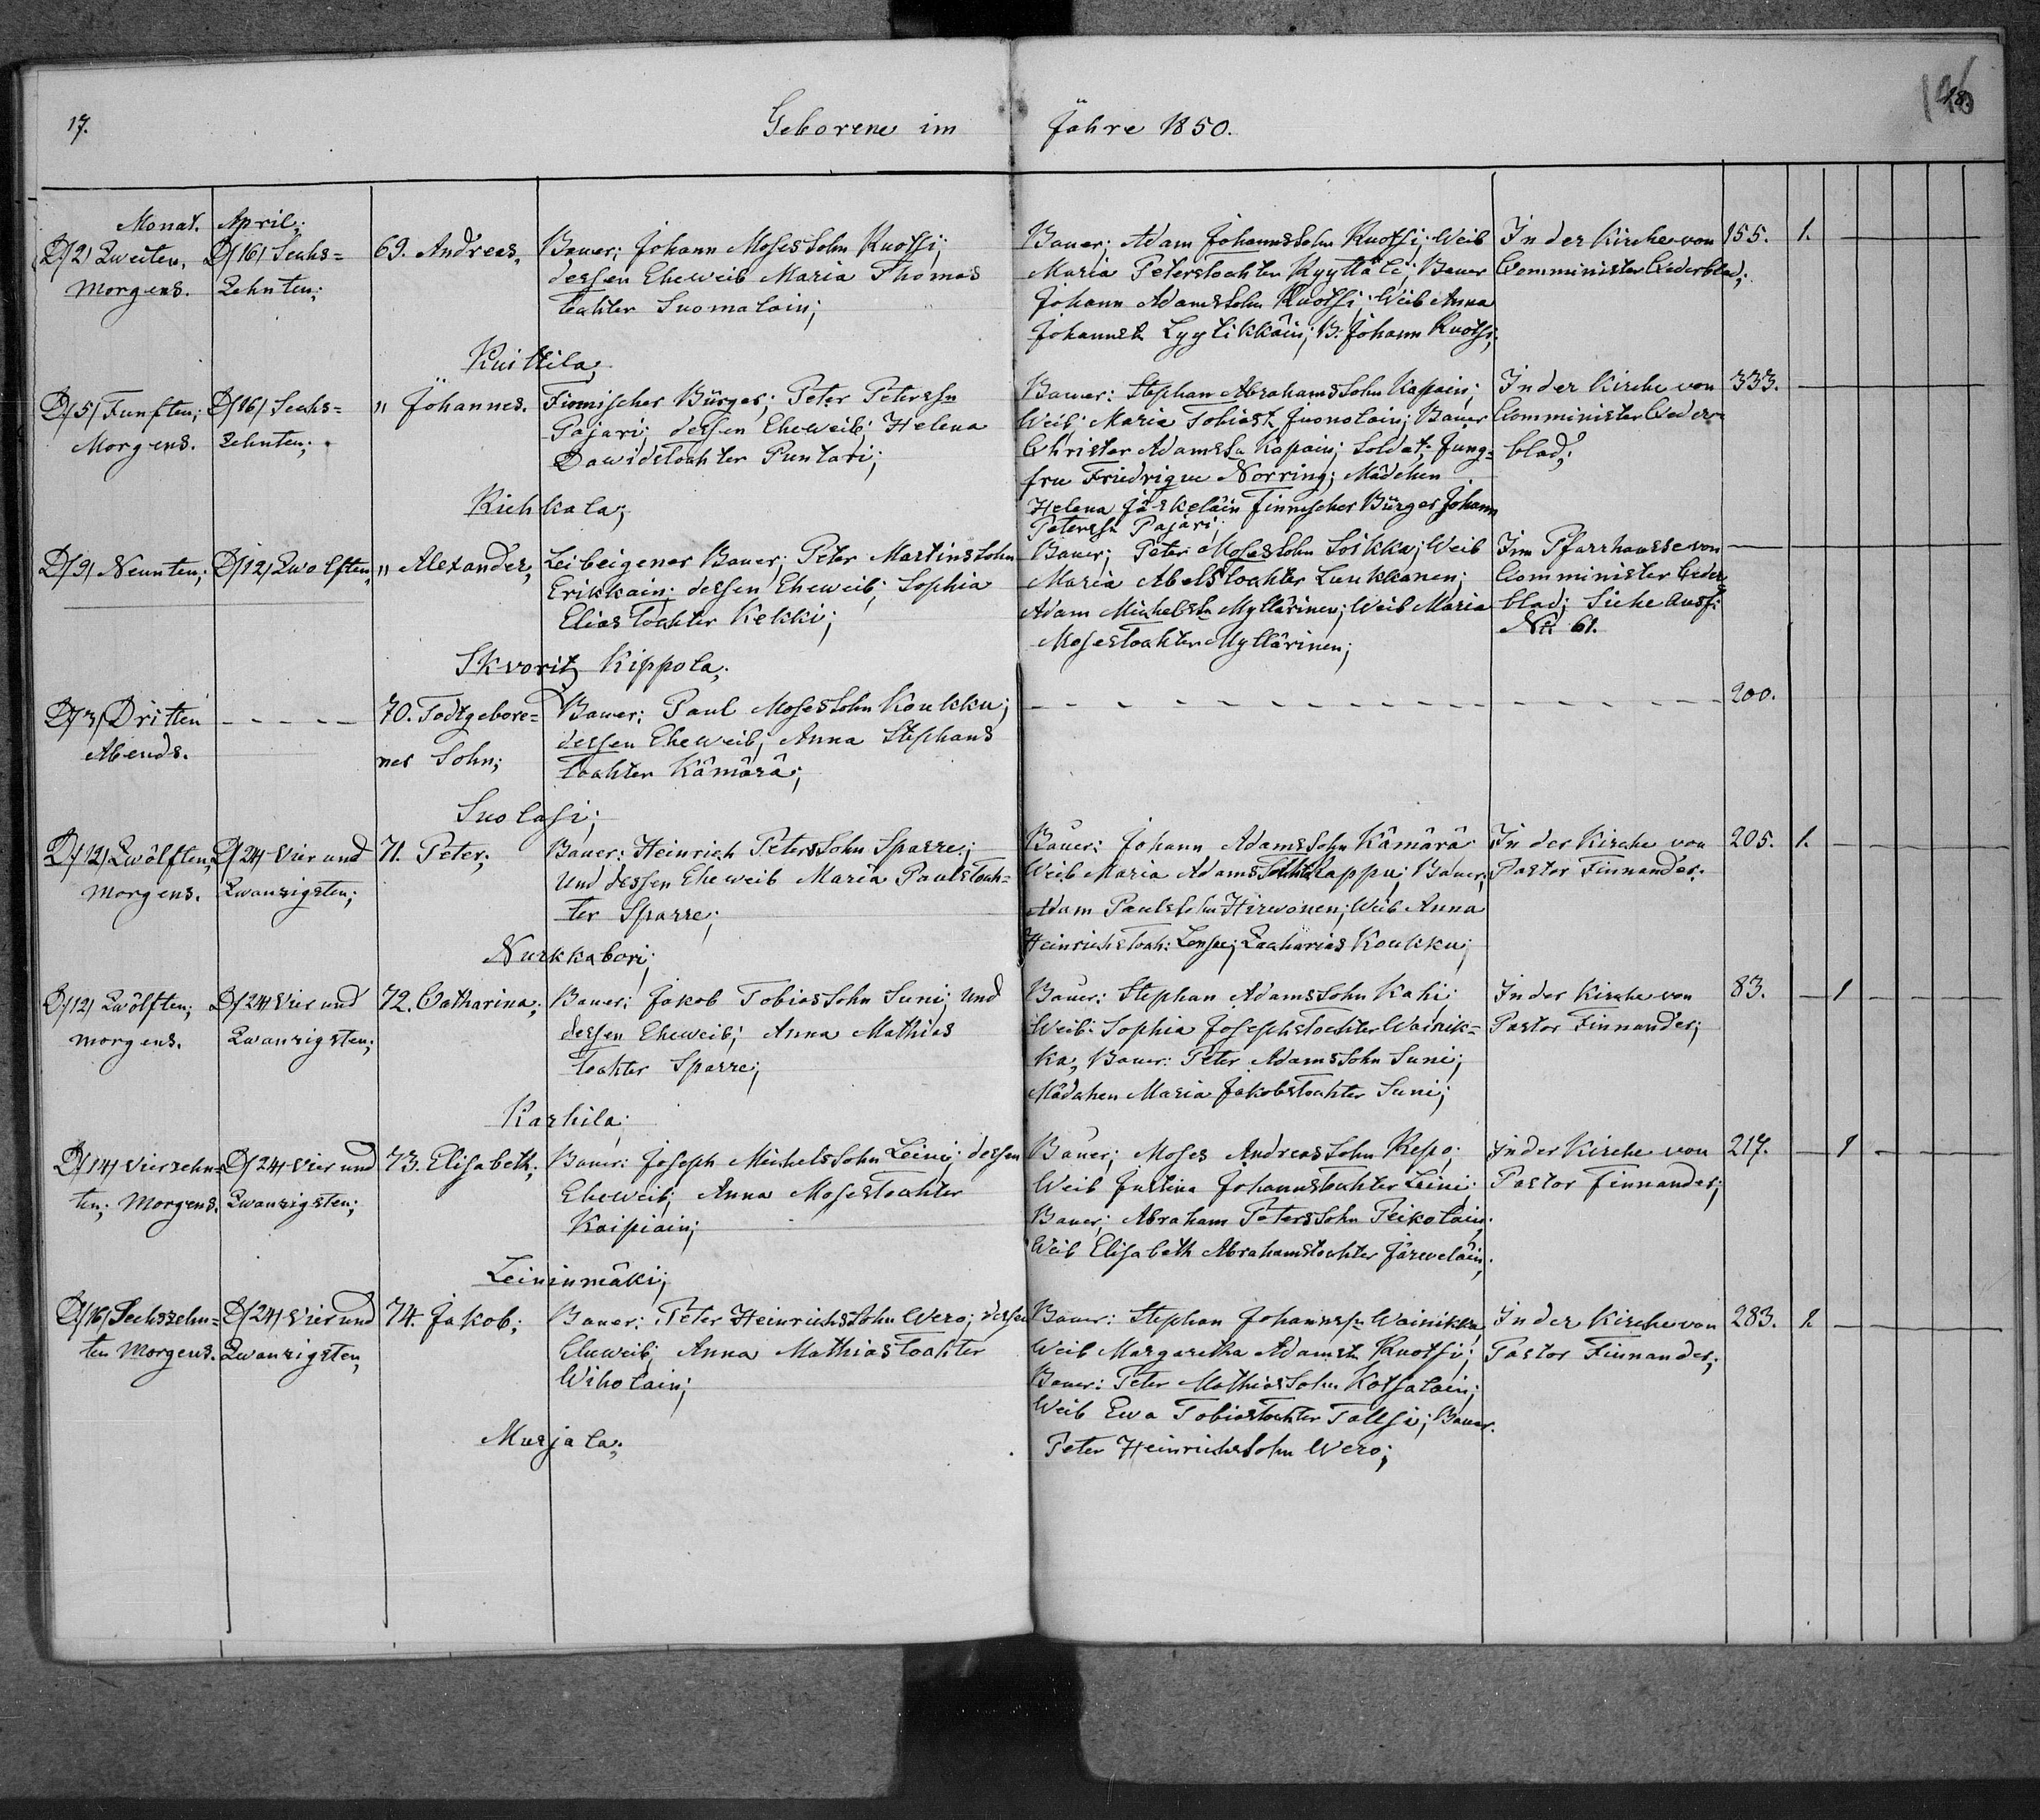 17.
Geborene im Jahre 1850.
18.
Monat. April;
D/2/ Zweiten, Morgens.
D/16/ Sechs=
Zehnten;
69. Andreas,
Bauer; Johann MosesSohn Ruotsi;
dessen Eheweib Maria Thomas
tochter Suomalain;
Bauer; Adam JohannsSohn Ruotsi; Weib
Maria Peterstochter Kyyttäle; Bauer
Johann AdamsSohn Ruotsi; Weib Anna
Johannst. Lyytikkäin; B. Johann Ruotsi;
In der Kirche von
Comminister Cederblad;
155.
1.
Kuittila;
D/5/ Funften;
Morgens.
D/16/ Sechs=
zehnten;
" Johannes.
Finnischer Bürger; Peter Peterssn
Pajari; dessen Eheweib; Helena
Dawidstochter Puntari;
Bauer: Stephan AbrahamsSohn Kapain;
Weib; Maria Tobiast. Juonolain; Bauer
Christer Adamssn Kapain; Soldat; Jung=
fru Friedrique Norring; Mädchen
Helena Jäskeläin Finnischer Bürger Johann
Peterssn Pajari;
In der Kirche von
Comminister Ceder=
blad;
333.
Riehkala;
D/9/ Neunten;
D/12/ Zwolften,
" Alexander,
Leibeigener Bauer; Peter MartinsSohn
Erikkain; dessen Eheweib; Sophia
Eliastochter Kekki;
Bauer; Peter MosesSohn Soikka; Weib
Maria Abelstochter Luukkanen;
Adam Michelssn Myllärinen; Weib Maria
Mosestochter Myllärinen;
Im Pfarrhausse von
Comminister Ceder
blad; Siehe Ausf:
№ 61.
Skvoritz Kippola;
D/3/ Dritten
Abends.
70. Todtgebore=
ner Sohn;
Bauer; Paul MosesSohn Koukku;
dessen Eheweib; Anna Stephans
tochter Kämärä;
200.
Suolasi;
D/12/ Zwölften,
Morgens.
D/24/ Vier und
Zwanzigsten;
71. Peter;
Bauer: Heinrich PetersSohn Sparre;
und dessen Eheweib Maria Paulstoch=
ter Sparre;
Bauer: Johann AdamsSohn Kämärä
Weib Maria Adams Rappu; Bauer;
Adam PaulsSohn Hirwonen; Weib Anna
Heinrichstoch: ; Zacharias Koukku;
In der Kirche von
Pastor Finnander.
205.
1.
Nurkkabori;
D/12/ Zwölften;
morgens.
D/24/ Vier und
Zwanzigsten;
72. Catharina;
Bauer; Jakob TobiasSohn Suni; und
dessen Eheweib; Anna Mathias
tochter Sparre;
Bauer: Stephan AdamsSohn Kahi;
Weib: Sophia Josephstochter Wainik=
ka, Bauer: Peter AdamsSohn Suni;
Mädchen Maria Jakobstochter Suni;
In der Kirche von
Pastor Finnander;
83.
1
Karhila;
D/14/ Vierzehn=
ten; Morgens.
D/24/ Vier und
Zwanzigsten;
73. Elisabeth;
Bauer: Joseph MichelsSohn Leini; dessen
Eheweib; Anna Mosestochter
Kaipiain;
Bauer; Moses AndreasSohn Repo;
Weib Justina Johannstochter Leini;
Bauer; Abraham PetersSohn Peikolain;
Weib Elisabeth Abrahamstochter Järweläin;
In der Kirche von
Pastor Finnander;
217.
1
Leininmäki;
D/16/ Sechszehn=
ten Morgens.
D/24/ Vier und
Zwanzigsten,
74. Jakob;
Bauer: Peter HeinrichsSohn Wero; dessen
Eheweib; Anna Mathiastochter
Wiholain;
Bauer: Stephan Johannssn Wainikka,
Weib Margaretha Adamst. Ruotsi;
Bauer: Peter MathiasSohn Kotsalain;
Weib Ewa Tobiastochter Tallsi; Bauer.
Peter HeinrichsSohn Wero;
In der Kirche von
Pastor Finnander;
283.
1.
Murjala;